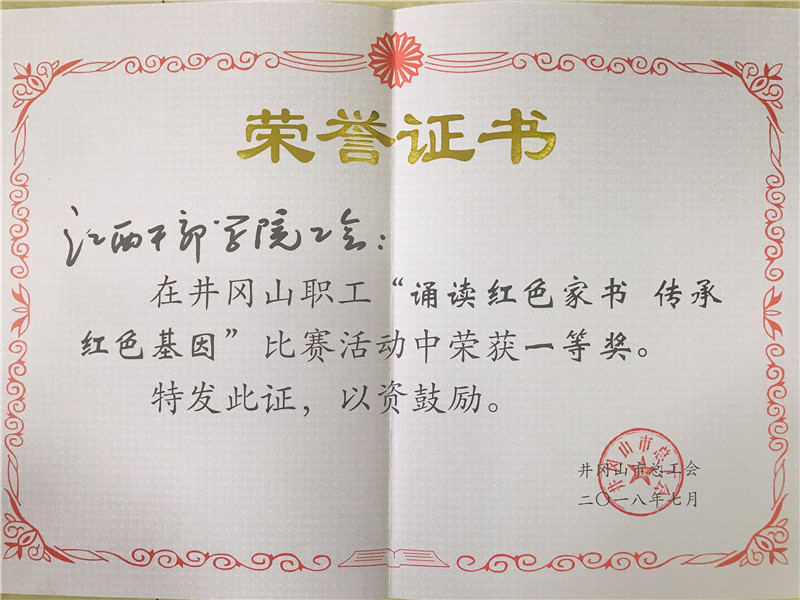 荣誉证书
江西干部学院工会：
在井冈山职工“诵读红色家书 传承
红色基因”比赛活动中荣获一等奖。
特发此证，以资鼓励。
井冈山市总工会
井冈山市总工会
二〇一八年七月